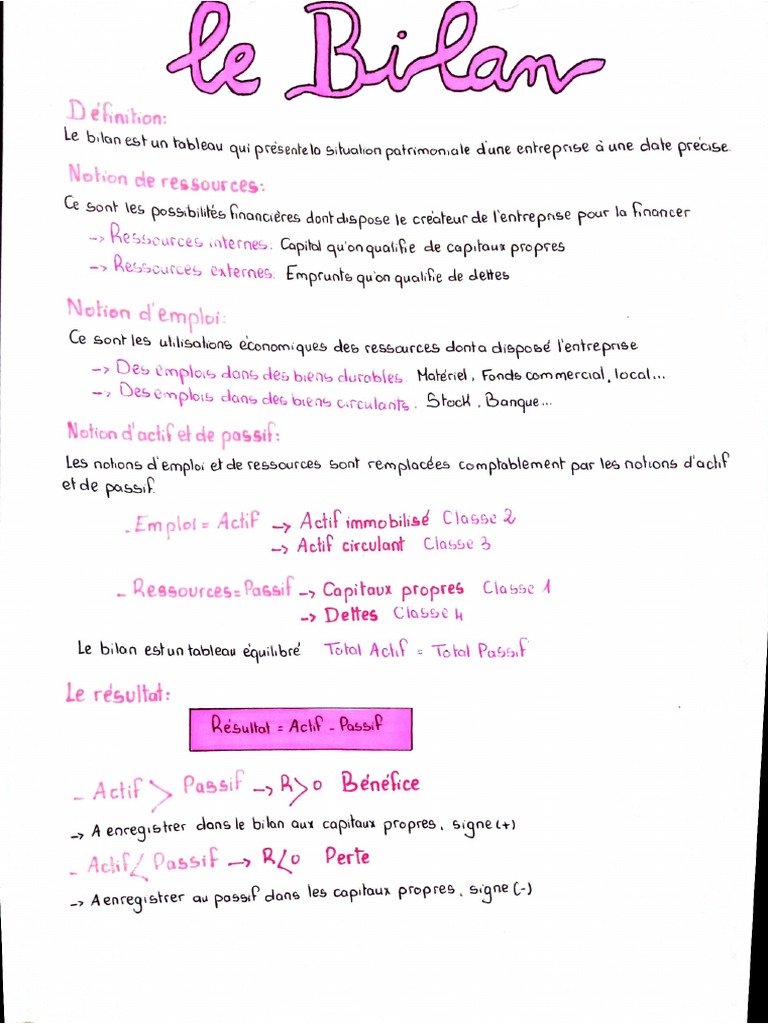 le Bilan
Définition:
Le bilan est un tableau qui présente la situation patrimoniale d'une entreprise à une date précise.
Notion de ressources:
Ce sont les possibilités financières dont dispose le créateur de l'entreprise pour la financer
-> Ressources internes. Capital qu'on qualifie de capitaux propres
-> Ressources externes. Emprunts qu'on qualifie de dettes
Notion d'emploi:
Ce sont les utilisations économiques des ressources dont a disposé l'entreprise
-> Des emplois dans des biens durables. Matériel, Fonds commercial, local...
-> Des emplois dans des biens circulants. Stock, Banque...
Notion d'actif et de passif:
Les notions d'emploi et de ressources sont remplacées comptablement par les notions d'actif
et de passif.
- Emploi = Actif -> Actif immobilisé Classe 2
-> Actif circulant Classe 3
- Ressources = Passif -> Capitaux propres Classe 1
-> Dettes Classe 4
Le bilan est un tableau équilibré Total Actif = Total Passif
Le résultat:
Résultat = Actif - Passif
- Actif > Passif -> R>0 Bénéfice
-> A enregistrer dans le bilan aux capitaux propres, signe (+)
- Actif < Passif -> R<0 Perte
-> A enregistrer au passif dans les capitaux propres, signe (-)